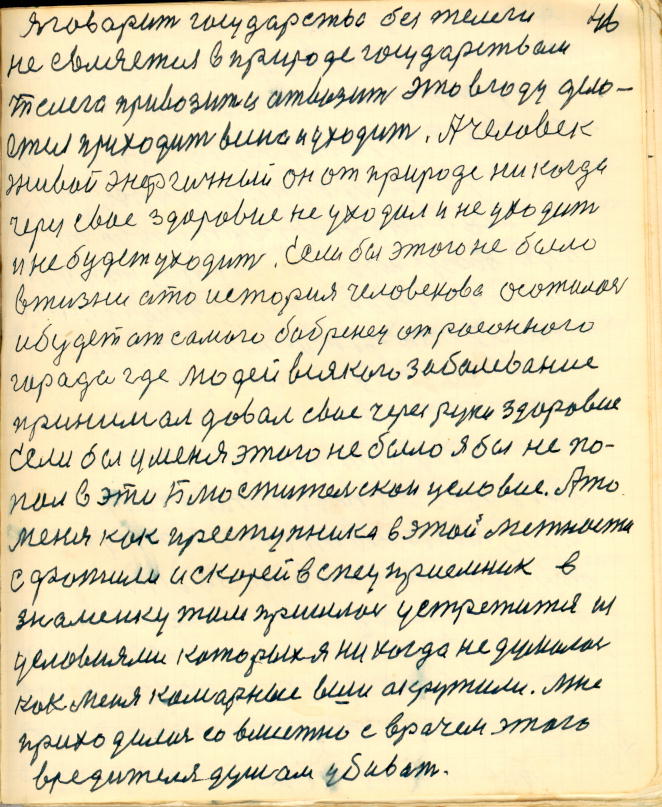 46
Я говарит государства без телеги
не свмяетия в природе государствам
телега привозит и атвозит это в году дело-
ется приходит вина и уходит. А человек
живой энергичный он от природе никогда
через свае здоровие не уходил и не уходит
и не будет уходит. Если бы этого не было
в жизни ато история человекова осотилоя
и будет от самого бобренец от раеонного
горада где людей всякого заболевание
принимал довал свае через руки здоровие
Если бы у меня этого не было я бы не по-
пал в эти условие. Ато
меня как преступника в этой мстности
с фотили и скорей в спец приемник в
знаменку там пришлоя устретится из
условиями каторых я никогда не думалоя
как меня камарные вши акружили. Мне
приходилоя совместно с врачем этого
вредителя душам убиват.